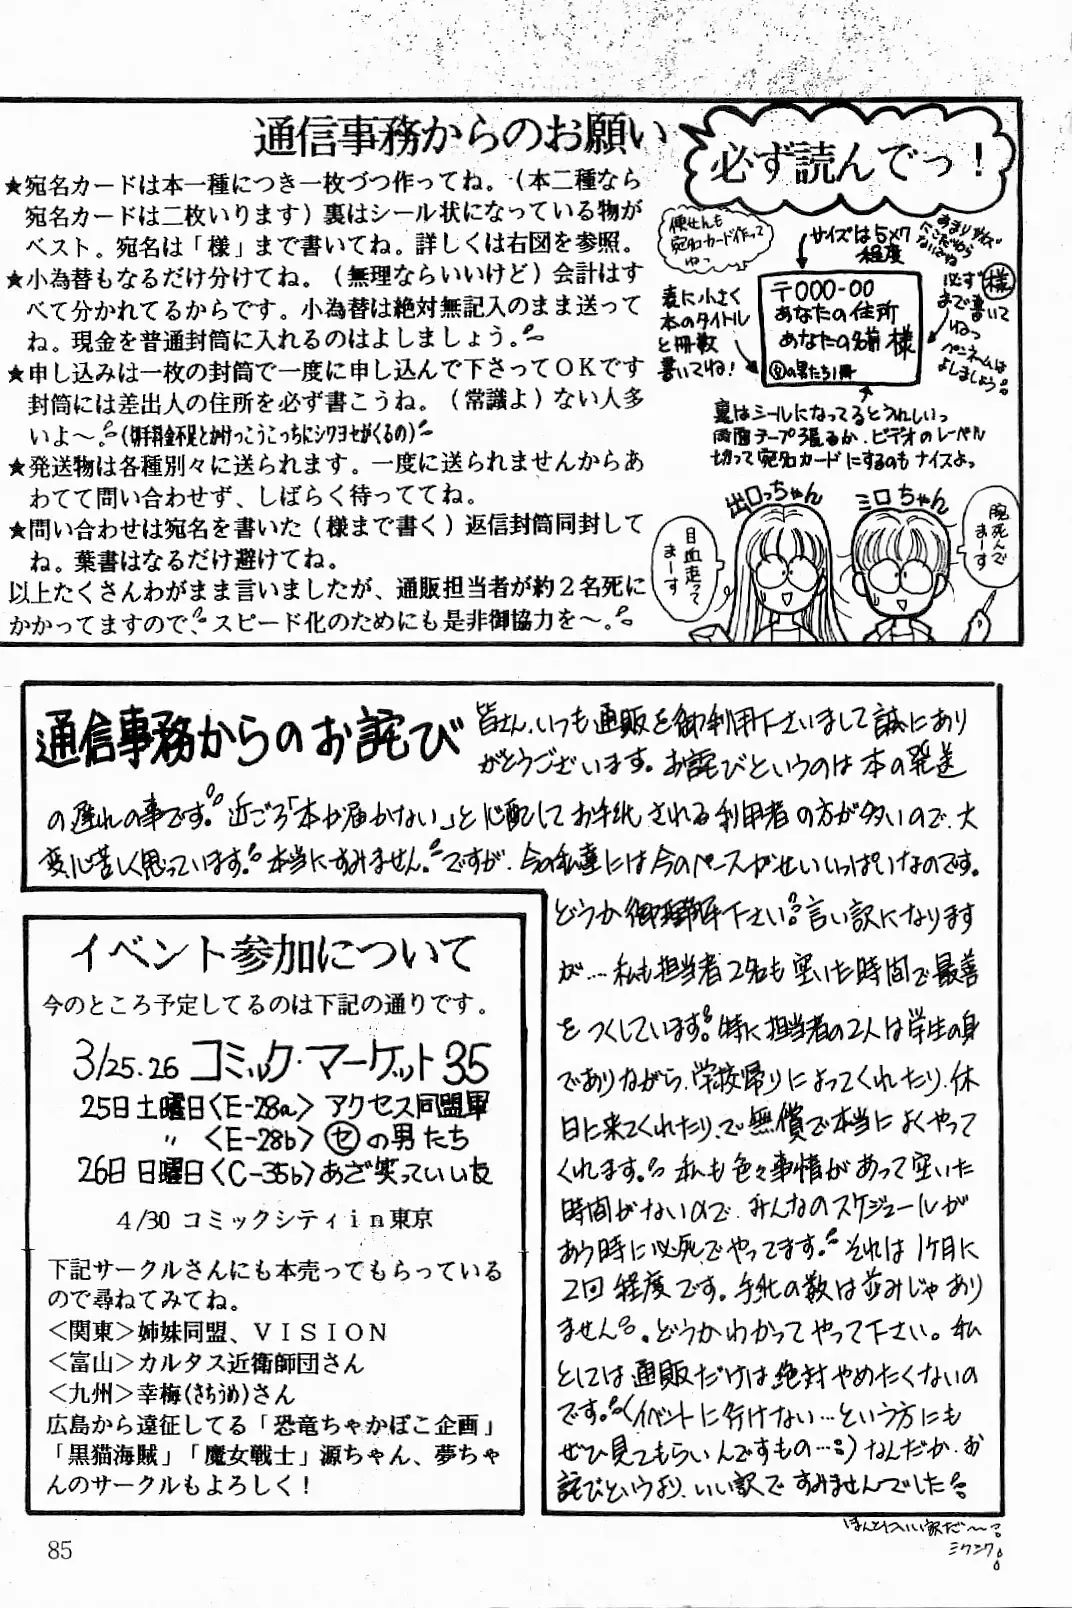 通信事務からのお願い
必ず読んでっ！
★宛名カードは本一種につき一枚づつ作ってね。（本二種なら
宛名カードは二枚いります）裏はシール状になっている物が
ベスト。宛名は「様」まで書いてね。詳しくは右図を参照。
★小為替もなるだけ分けてね。（無理ならいいけど）会計はす
べて分かれてるからです。小為替は絶対無記入のまま送って
ね。現金を普通封筒に入れるのはよしましょう。
★申し込みは一枚の封筒で一度に申し込んで下さってＯＫです
封筒には差出人の住所を必ず書こうね。（常識よ）ない人多
いよ～。(切手料金不足とかけっこうこっちにシワヨセがくるの)
★発送物は各種別々に送られます。一度に送られませんからあ
わてて問い合わせず、しばらく待っててね。
★問い合わせは宛名を書いた（様まで書く）返信封筒同封して
ね。葉書はなるだけ避けてね。
以上たくさんわがまま言いましたが、通販担当者が約２名死に
かかってますので、スピード化のためにも是非御協力を～。
便せんも
宛名カード作って
ねっ
サイズは5×7
程度
必ず様
まで書いて
ねっ
ペンネームは
よしましょう
表に小さく
本のタイトル
と冊数
書いてね！
〒000-00
あなたの住所
あなたの名前 様
㋝の男たち1冊
裏はシールになってるとうれしいっ
両面テープ張るか、ビデオのレーベル
切って宛名カードにするのもナイスよっ
出口っちゃん
ミロちゃん
目血走って
まーす
腕死んで
まーす
通信事務からのお詫び
皆さん、いつも通販を御利用下さいまして誠にあり
がとうございます。お詫びというのは本の発送
の遅れの事です。近ごろ「本が届かない」と心配してお手紙される利用者の方が多いので、大
変心苦しく思っています。本当にすみません。ですが、今の私達には今のペースがせいいっぱいなのです。
どうか御理解下さい。言い訳になります
が…私も担当者2名も空いた時間で最善
をつくしています。特に担当者の2人は学生の身
でありながら、学校帰りによってくれたり、休
日に来てくれたり、で無償で本当によくやって
くれます。私も色々事情があって空いた
時間がないので、みんなのスケジュールが
あう時に必死でやってます。それは1ケ月に
2回程度です。手紙の数は並みじゃあり
ません。どうかわかってやって下さい。私
としては通販だけは絶対やめたくないの
です。(イベントに行けない…という方にも
ぜひ見てもらいんですもの…)なんだか、お
詫びというより、いい訳ですみませんでした
ほんとにいい訳だ～
イベント参加について
今のところ予定してるのは下記の通りです。
3/25.26 コミック・マーケット35
25日土曜日〈E-28a〉アクセス同盟軍
〃 〈E-28b〉㋝の男たち
26日日曜日〈C-35b〉あざ笑っていい友
4/30 コミックシティｉｎ東京
下記サークルさんにも本売ってもらっている
ので尋ねてみてね。
＜関東＞姉妹同盟、ＶＩＳＩＯＮ
＜富山＞カルタス近衛師団さん
＜九州＞幸梅(さちうめ)さん
広島から遠征してる「恐竜ちゃかぽこ企画」
「黒猫海賊」「魔女戦士」源ちゃん、夢ちゃ
んのサークルもよろしく！
85